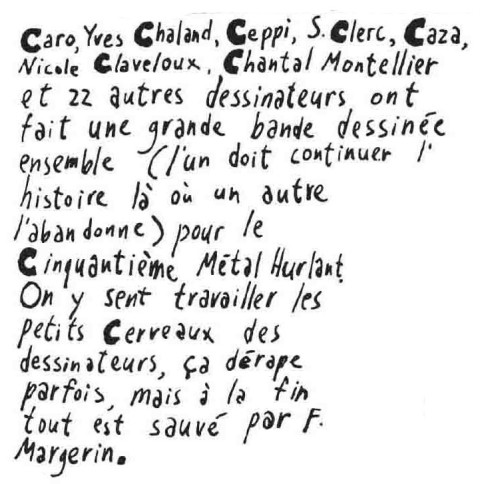 Caro, Yves Chaland, Ceppi, S. Clerc, Caza,
Nicole Claveloux, Chantal Montellier
et 22 autres dessinateurs ont
fait une grande bande dessinée
ensemble (l'un doit continuer l'
histoire là où un autre
l'abandonne) pour le
Cinquantième Métal Hurlant.
On y sent travailler les
petits Cerveaux des
dessinateurs, ça dérape
parfois, mais à la fin
tout est sauvé par F.
Margerin.